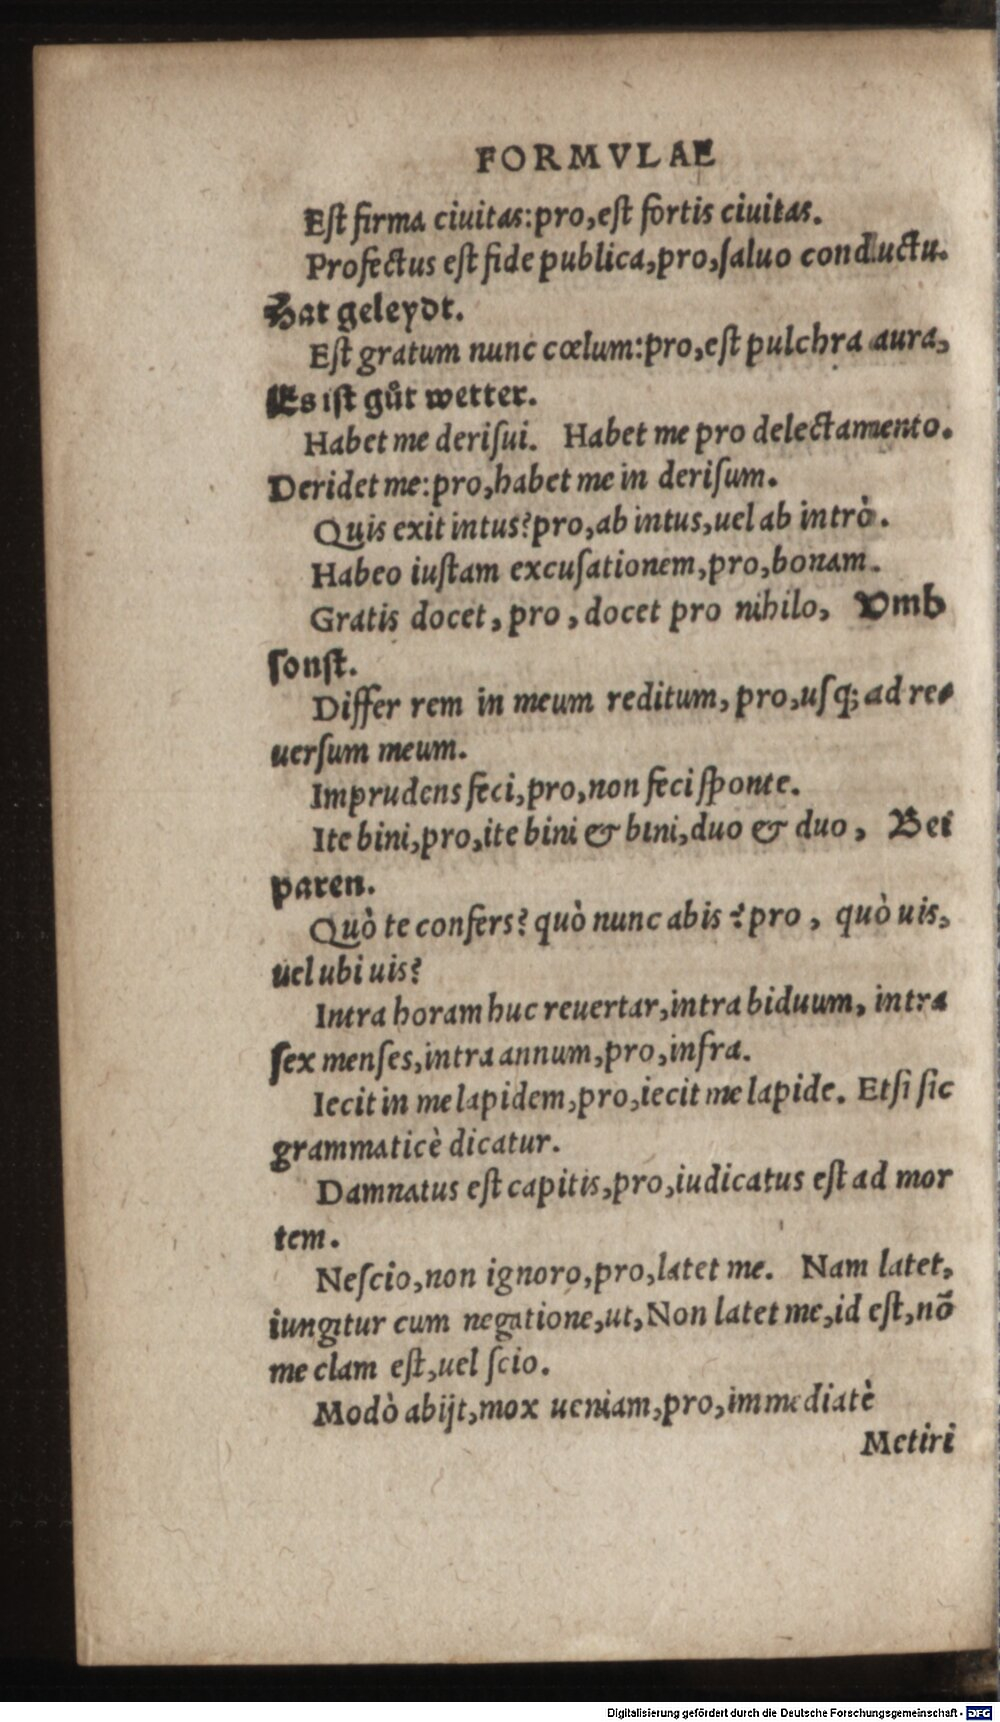 FORMVLAE
Eſt firma ciuitas:pro,eſt fortis ciuitas.
Profectus eſt fide publica,pro,ſaluo conductu.
Hat geleydt.
Eſt gratum nunc cœlum:pro,eſt pulchra aura,
Es iſt gůt wetter.
Habet me deriſui. Habet me pro delectamento.
Deridet me:pro,habet me in deriſum.
Quis exit intus?pro,ab intus,uel ab intrò.
Habeo iuſtam excuſationem,pro,bonam.
Gratis docet, pro, docet pro nihilo, Vmb
ſonſt.
Differ rem in meum reditum, pro,uſq; ad re-
uerſum meum.
Imprudens feci,pro,non feci ſponte.
Ite bini,pro,ite bini & bini,duo & duo, Bei
paren.
Quò te confers? quò nunc abis? pro, quò uis,
uel ubi uis?
Intra horam huc reuertar,intra biduum, intra
ſex menſes,intra annum,pro,infra.
Iecit in me lapidem,pro,iecit me lapide. Etſi ſic
grammaticè dicatur.
Damnatus eſt capitis,pro,iudicatus eſt ad mor
tem.
Neſcio,non ignoro,pro,latet me. Nam latet,
iungitur cum negatione,ut,Non latet me,id eſt,nõ
me clam eſt,uel ſcio.
Modò abijt,mox ueniam,pro,immediatè
Metiri
Digitalisierung gefördert durch die Deutsche Forschungsgemeinschaft - DFG